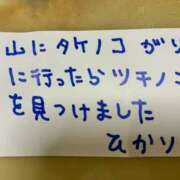 山にタケノコが
に行ったらツチノ
を見つけました
ひかり